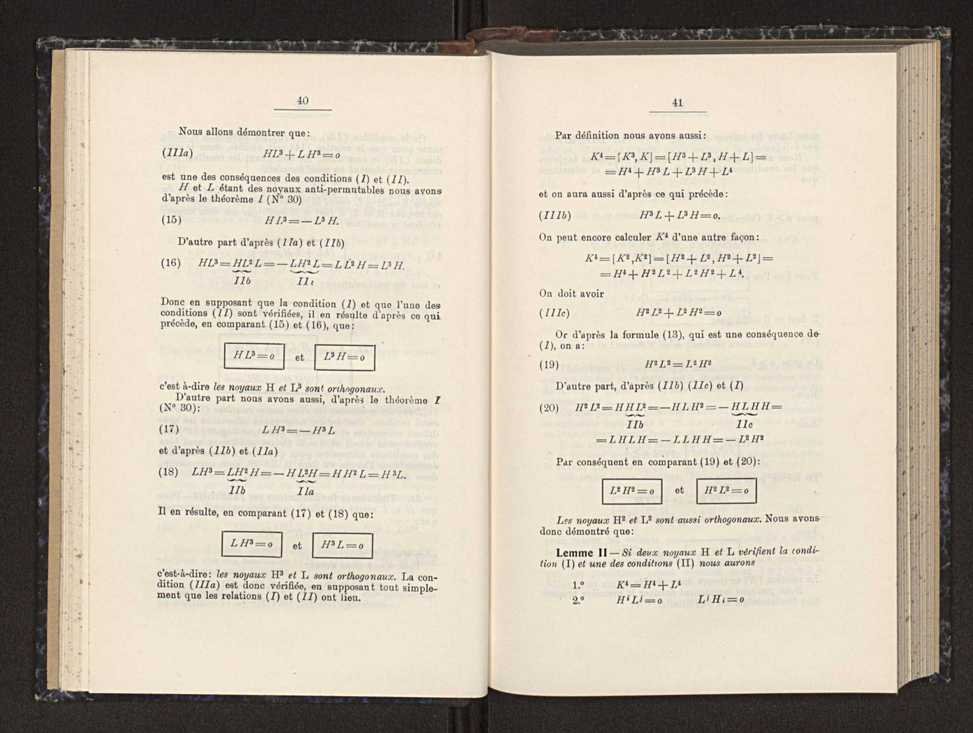 40
Nous allons démontrer que:
(IIIa) HL³ + LH³ = o
est une des conséquences des conditions (I) et (II).
H et L étant des noyaux anti-permutables nous avons
d'après le théorème I (N° 30)
(15) HL³ = — L³ H.
D'autre part d'après (IIa) et (IIb)
(16) HL³ = HL² L = — LH² L = L L² H = L³ H.
IIb II
Donc en supposant que la condition (I) et que l'une des
conditions (II) sont vérifiées, il en résulte d'après ce qui
précède, en comparant (15) et (16), que:
HL³ = o et L³ H = o
c'est à-dire les noyaux H et L³ sont orthogonaux.
D'autre part nous avons aussi, d'après le théorème I
(N° 30):
(17) LH³ = — H³ L
et d'après (IIb) et (IIa)
(18) LH³ = LH² H = — HL² H = HH² L = H³ L.
IIb IIa
Il en résulte, en comparant (17) et (18) que:
LH³ = o et H³ L = o
c'est-à-dire: les noyaux H³ et L sont orthogonaux. La con-
dition (IIIa) est donc vérifiée, en supposant tout simple-
ment que les relations (I) et (II) ont lieu.
41
Par définition nous avons aussi:
K⁴ = [K³, K] = [H³ + L³, H + L] =
= H⁴ + H³ L + L³ H + L⁴
et on aura aussi d'après ce qui précède:
(IIIb) H³ L + L³ H = o.
On peut encore calculer K⁴ d'une autre façon:
K⁴ = [K², K²] = [H² + L², H² + L²] =
= H⁴ + H² L² + L² H² + L⁴.
On doit avoir
(IIIc) H² L² + L² H² = o
Or d'après la formule (13), qui est une conséquence de
(I), on a:
(19) H² L² = L² H²
D'autre part, d'après (IIb) (IIc) et (I)
(20) H² L² = HHL² = — HLH² = — HLHH =
IIb IIc
= LHLH = — LLHH = — L² H²
Par conséquent en comparant (19) et (20):
L² H² = o et H² L² = o
Les noyaux H² et L² sont aussi orthogonaux. Nous avons
donc démontré que:
Lemme II — Si deux noyaux H et L vérifient la condi-
tion (I) et une des conditions (II) nous aurons
1.° K⁴ = H⁴ + L⁴
2.° Hⁱ Lʲ = o Lʲ Hᵢ = o